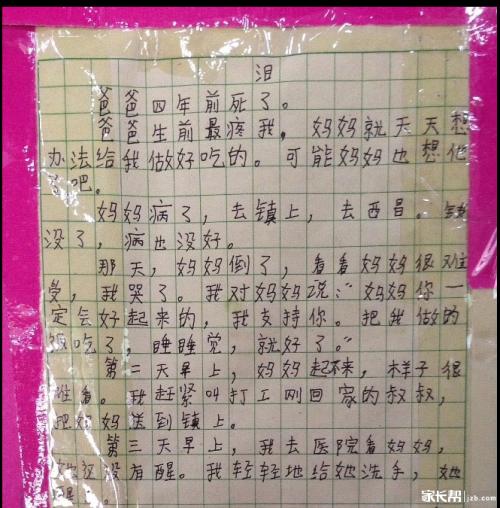 泪
爸爸四年前死了。
爸爸生前最疼我，妈妈就天天想
办法给我做好吃的。可能妈妈也想他
了吧。
妈妈病了，去镇上，去西昌。钱
没了，病也没好。
那天，妈妈倒了，看看妈妈很难
受，我哭了。我对妈妈说：“妈妈你一
定会好起来的，我支持你。把我做的
饭吃了，睡睡觉，就好了。”
第二天早上，妈妈起不来，样子很
难看。我赶紧叫打工刚回家的叔叔，
把妈妈送到镇上。
第三天早上，我去医院看妈妈，
她还没有醒。我轻轻地给她洗手，她
醒
家长帮 jzb.com